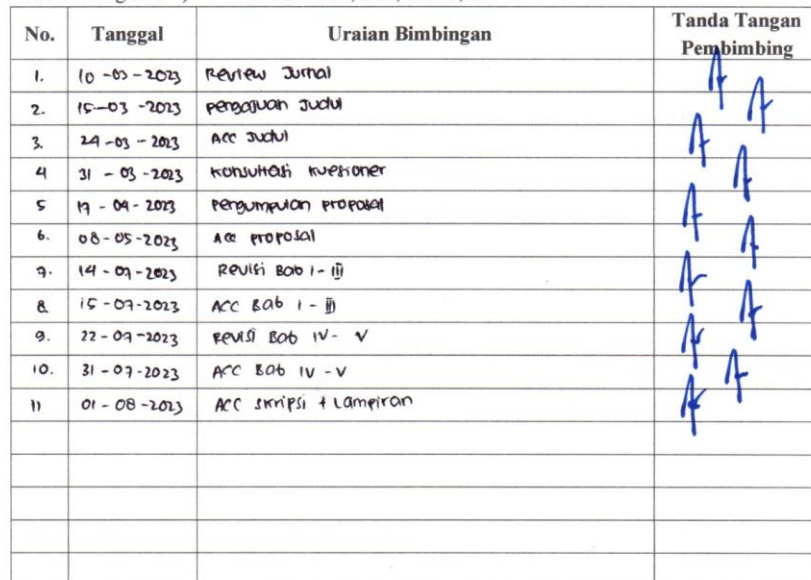 No. Tanggal Uraian Bimbingan Tanda Tangan Pembimbing
1. 10-03-2023 Review Jurnal
2. 15-03-2023 pengajuan Judul
3. 24-03-2023 ACC Judul
4 31-03-2023 Konsultasi Kuesioner
5 17-04-2023 Pengumpulan proposal
6. 08-05-2023 Acc proposal
7. 14-07-2023 Revisi Bab I-III
8 15-07-2023 ACC Bab I-III
9. 22-07-2023 Revisi Bab IV-V
10. 31-07-2023 ACC Bab IV-V
11 01-08-2023 ACC Skripsi + Lampiran